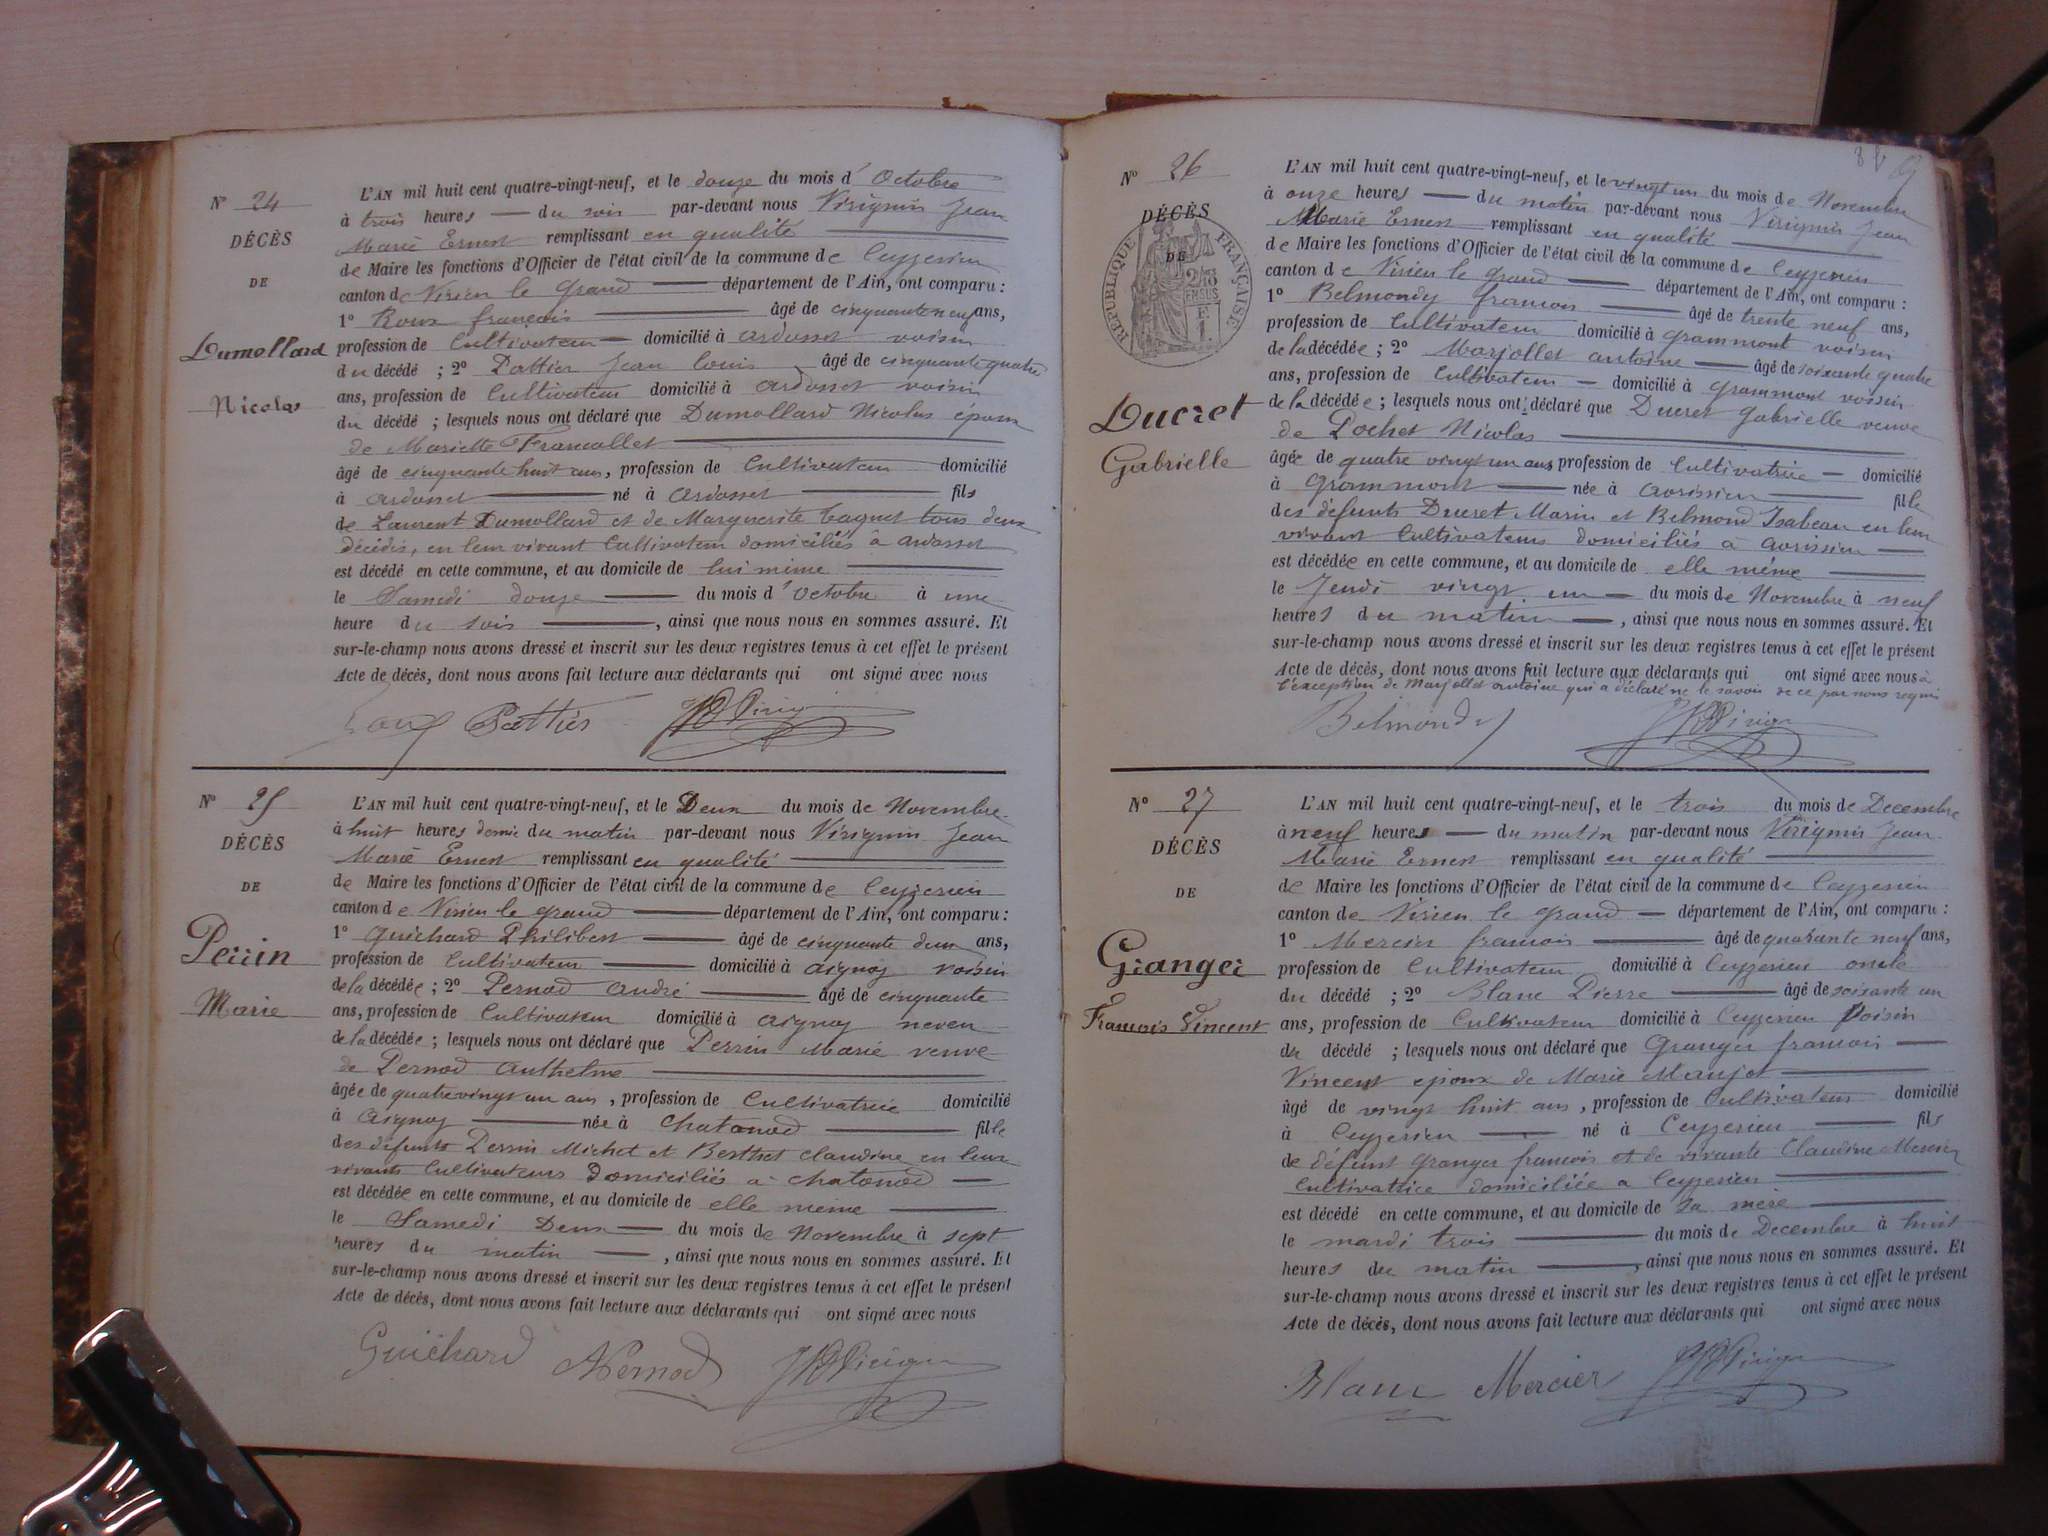 Nº 24
DÉCÈS
DE
Dumollard
Nicolas
L'AN mil huit cent quatre-vingt-neuf, et le douze du mois d' Octobre
à trois heures du soir par-devant nous Virignin Jean
Marie Ernest remplissant en qualité
de Maire les fonctions d'Officier de l'état civil de la commune de Ceyzerieu
canton de Virieu le Grand département de l'Ain, ont comparu :
1º Roux françois âgé de cinquante neuf ans,
profession de Cultivateur domicilié à ardosset voisin
du décédé ; 2º Pattier Jean Louis âgé de cinquante quatre
ans, profession de Cultivateur domicilié à ardosset voisin
du décédé ; lesquels nous ont déclaré que Dumollard Nicolas epoux
de Mariette Francollet
âgé de cinquante huit ans, profession de Cultivateur domicilié
à ardosset né à ardosset fils
de Laurent Dumollard et de Marguerite tous deux
décédés, en leur vivant Cultivateur domiciliés à ardosset
est décédé en cette commune, et au domicile de lui même
le Samedi douze du mois d' Octobre à une
heure du soir , ainsi que nous nous en sommes assuré. Et
sur-le-champ nous avons dressé et inscrit sur les deux registres tenus à cet effet le présent
Acte de décès, dont nous avons fait lecture aux déclarants qui ont signé avec nous
Roux Pattier
Nº 25
DÉCÈS
DE
Perrin
Marie
L'AN mil huit cent quatre-vingt-neuf, et le Deux du mois de Novembre
à huit heures demie du matin par-devant nous Virignin Jean
Marie Ernest remplissant en qualité
de Maire les fonctions d'Officier de l'état civil de la commune de Ceyzerieu
canton de Virieu le grand département de l'Ain, ont comparu :
1º Guichard Philibert âgé de cinquante deux ans,
profession de Cultivateur domicilié à aignoz voisin
de la décédée ; 2º Pernod André âgé de cinquante
ans, profession de Cultivateur domicilié à aignoz neveu
de la décédée ; lesquels nous ont déclaré que Perrin Marie veuve
de Pernod Anthelme
âgée de quatre vingt un ans , profession de Cultivatrice domicilié
à aignoz née à Chatonod fille
des défunts Perrin Michel et Berthet Claudine en leur
vivants Cultivateurs Domiciliés a Chatonod
est décédée en cette commune, et au domicile de elle même
le Samedi Deux du mois de Novembre à sept
heures du matin , ainsi que nous nous en sommes assuré. Et
sur-le-champ nous avons dressé et inscrit sur les deux registres tenus à cet effet le présent
Acte de décès, dont nous avons fait lecture aux déclarants qui ont signé avec nous
Guichard APernod
Nº 26
DÉCÈS
DE
RÉPUBLIQUE FRANÇAISE
Ducret
Gabrielle
L'AN mil huit cent quatre-vingt-neuf, et le vingt un du mois de Novembre
à onze heures du matin par-devant nous Virignin Jean
Marie Ernest remplissant en qualité
de Maire les fonctions d'Officier de l'état civil de la commune de Ceyzerieu
canton de Virieu le grand département de l'Ain, ont comparu :
1º Belmondy francois âgé de trente neuf ans,
profession de Cultivateur domicilié à grammont voisin
de la décédée ; 2º Marjollet antoine âgé de soixante quatre
ans, profession de Cultivateur domicilié à grammont voisin
de la décédée ; lesquels nous ont déclaré que Ducret Gabrielle veuve
de Pochet Nicolas
âgée de quatre vingt un ans profession de Cultivatrice domicilié
à Grammont née à avrissieu fille
des défunts Ducret Marin et Belmond Isabeau en leur
vivant Cultivateurs domiciliés à avrissieu
est décédée en cette commune, et au domicile de elle même
le Jeudi vingt un du mois de Novembre à neuf
heures du matin , ainsi que nous nous en sommes assuré. Et
sur-le-champ nous avons dressé et inscrit sur les deux registres tenus à cet effet le présent
Acte de décès, dont nous avons fait lecture aux déclarants qui ont signé avec nous à
l'exception de Marjollet antoine qui a déclaré ne le savoir de ce par nous requis
Belmondy
Nº 27
DÉCÈS
DE
Granger
Francois Vincent
L'AN mil huit cent quatre-vingt-neuf, et le trois du mois de Decembre
à neuf heures du matin par-devant nous Virignin Jean
Marie Ernest remplissant en qualité
de Maire les fonctions d'Officier de l'état civil de la commune de Ceyzerieu
canton de Virieu le grand département de l'Ain, ont comparu :
1º Mercier francois âgé de quarante neuf ans,
profession de Cultivateur domicilié à Ceyzerieu oncle
du décédé ; 2º Blanc Pierre âgé de soixante un
ans, profession de Cultivateur domicilié à Ceyzerieu Voisin
du décédé ; lesquels nous ont déclaré que Granger francois
Vincent epoux de Marie Manjot
âgé de vingt huit ans , profession de Cultivateur domicilié
à Ceyzerieu né à Ceyzerieu fils
de défunt Granger francois et de vivante Claudine Mercier
Cultivattrice domiciliée a Ceyzerieu
est décédé en cette commune, et au domicile de sa mère
le mardi trois du mois de Decembre à huit
heures du matin , ainsi que nous nous en sommes assuré. Et
sur-le-champ nous avons dressé et inscrit sur les deux registres tenus à cet effet le présent
Acte de décès, dont nous avons fait lecture aux déclarants qui ont signé avec nous
Blanc Mercier